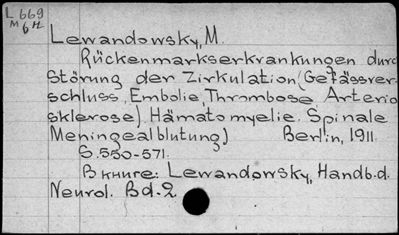 L 669
M 6 H
Lewandowsky, M.
Rückenmarkserkrankungen durc
Störung der Zirkulation (Gefässver-
schluss, Embolie, Thrombose Arterio
sklerose). Hämatomyelie. Spinale
Meningealblutung) Berlin, 1911.
S. 550-571.
В книге: Lewandowsky, Handb. d.
Neurol. Bd. 2